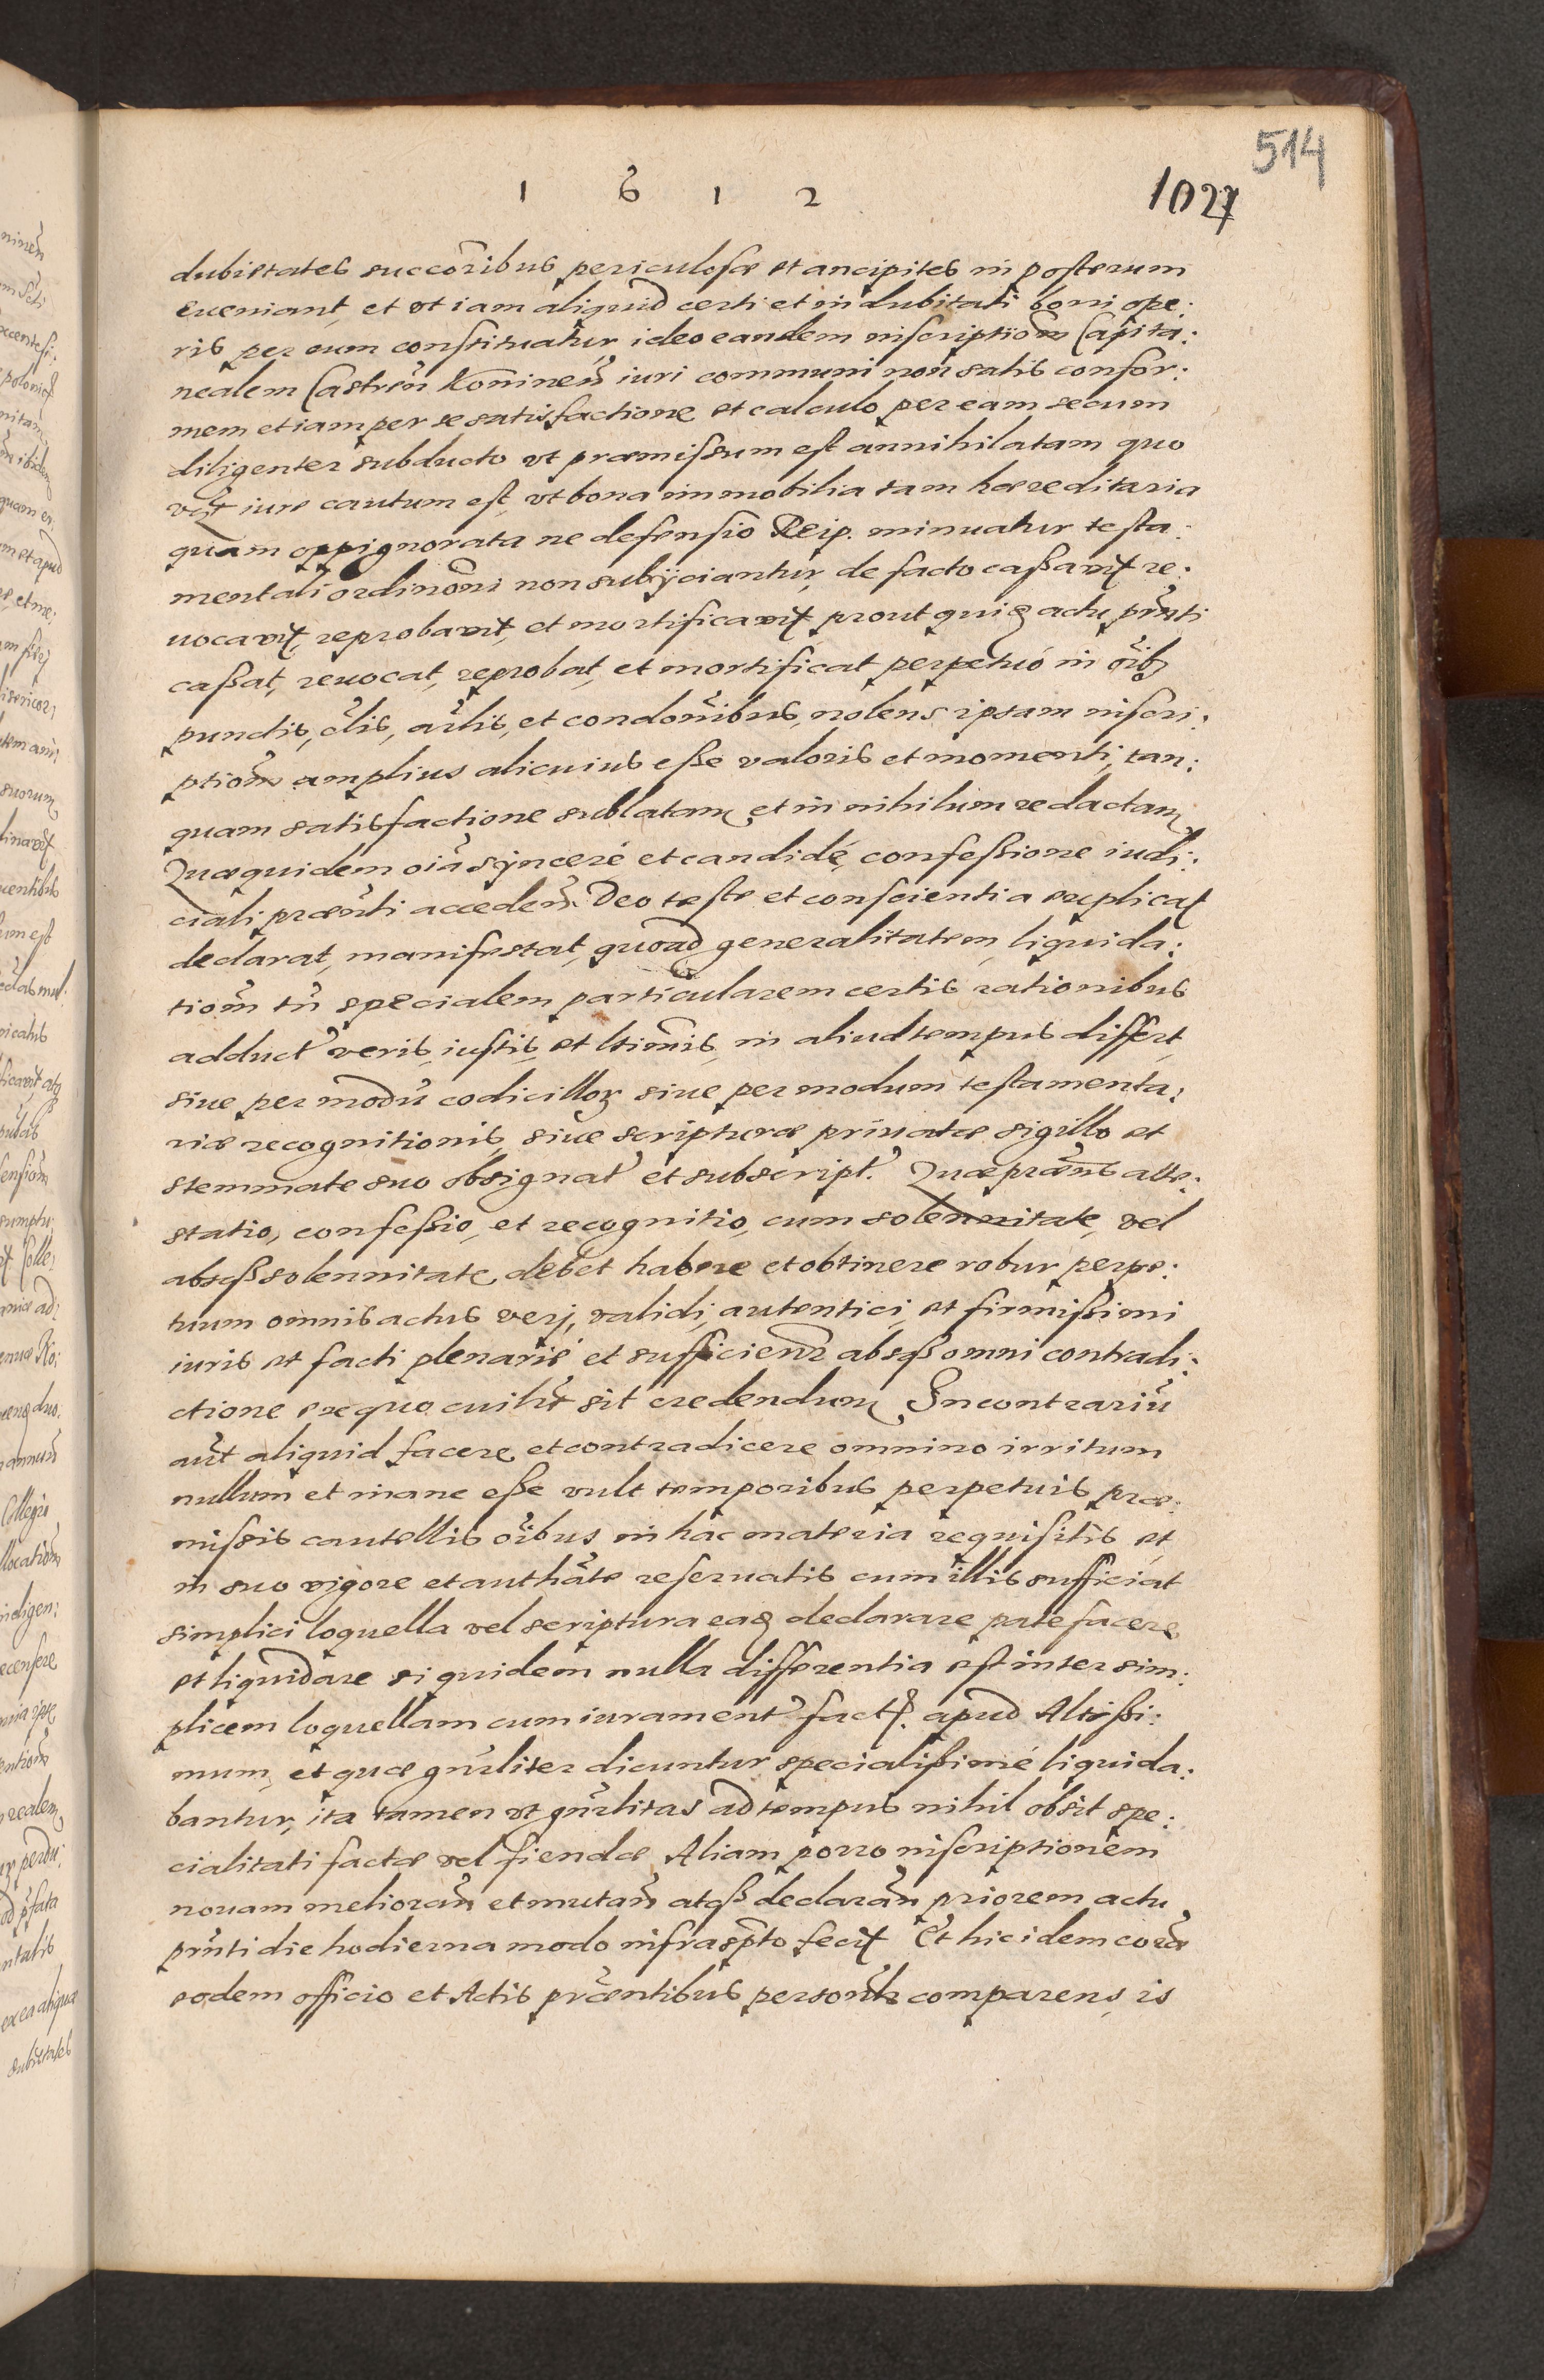 514
1 6 1 2
1027
dubietates succōribus periculosæ et ancipites in posterum
eueniant, et vt iam aliquid certi et indubitati boni ope:
ris per eum constituatur, ideo eandem inscriptiōm Capita:
nealem Castreñ Konineñ iuri communi non satis confor:
mem etiam per se satisfactione et calculo per eam secum
diligenter subducto vt præmissum est annihilatam quo
iure cautum est, vt bona immobilia tam hæreditaria
quam oppignorata ne defensio Reip. minuatur testa:
mentali ordinōni non subijciantur, de facto cassavit re:
uocavit, reprobavit, et mortificavit prout quidem actu pñti
cassat, reuocat, reprobat, et mortificat perpetuó in oĩbq
punctis, clis, arlis, et condonibus, nolens ipsam inscri:
ptiom amplius alicuius esse valoris et momenti, tan:
quam satisfactione sublatam, et in nihilum redactam
Quæquidem oia synceré et candidé, confessione iudi:
ciali præñti acceden̄. Deo teste et conscientia explicat
declarat, manifestat, quoad generalitatem, liquida:
tiom tñ specialem particularem certis rationibus
adduct' veris, iustis, et ltimis, in aliud tempus differt,
siue per modū codicillorum siue per modum testamenta:
riæ recognitionis, siue scripturæ priuatæ sigillo et
stemmate suo obsignat' et subscript'. Quæ præns atte:
statio, confessio, et recognitio, cum solennitate, vel
absqß solennitate debet habere et obtinere robur perpe:
tuum omnis actus verj, validi, autentici, et firmissimi
iuris et facti plenarié et sufficienr absqß omni contradi:
ctione ex quo cuilt sit credendum In contrariū
aut aliquid facere et contradicere omnino irritum
nullum et inane esse vult temporibus perpetuis præ:
missis cautellis oibus in hac materia requisitis et
in suo vigore et authāte reseruatis cum illis sufficiat
simplici loquella vel scriptura eadem declarare patefacere
et liquidare siquidem nulla differentia est inter sim:
plicem loquellam cum iurament' fact. apud Altissi:
mum, et quæ gnrliter dicuntur specialissimé liquida:
bantur, ita tamen vt gnrlitas ad tempus nihil obsit spe:
cialitati factæ vel fiendæ Aliam porro inscriptionem
nouam melioran̄ et mutan̄ atqß declaran̄ priorem actu
pñti die hodierna modo infrasp̄to fecit Et hic idem corā
eodem officio et Actis præntibus personlr comparens, is